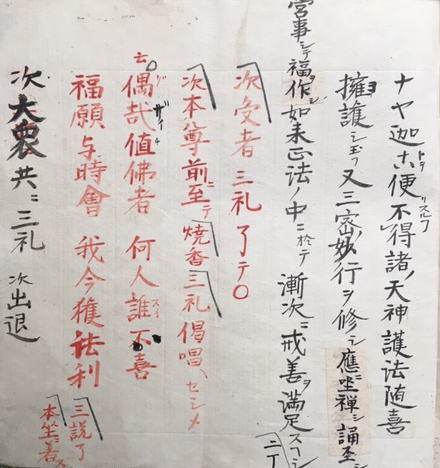 ナヤ迦ホ便不得諸ノ天神護法随喜
擁護シ玉フ又三密妙行ヲ修シ應坐禅シ誦
営事シテ福作シ如来正法ノ中ニ於テ漸次ニ戒善ヲ満足
次受者三礼了テ〇
次本尊前ニ至テ焼香三礼偈唱ヘセシメ
云偶哉値佛者 何人誰不喜
福願与時會 我今獲法利 三説了
本坐ニ
次大衆共ニ三礼 次出退